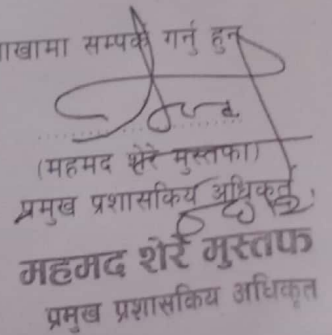 ाखामा सम्पर्क गर्नु हुन
(महमद शेरे मुस्तफा)
प्रमुख प्रशासकिय अधिकृत
महमद शेरे मुस्तफ
प्रमुख प्रशासकिय अधिकृत